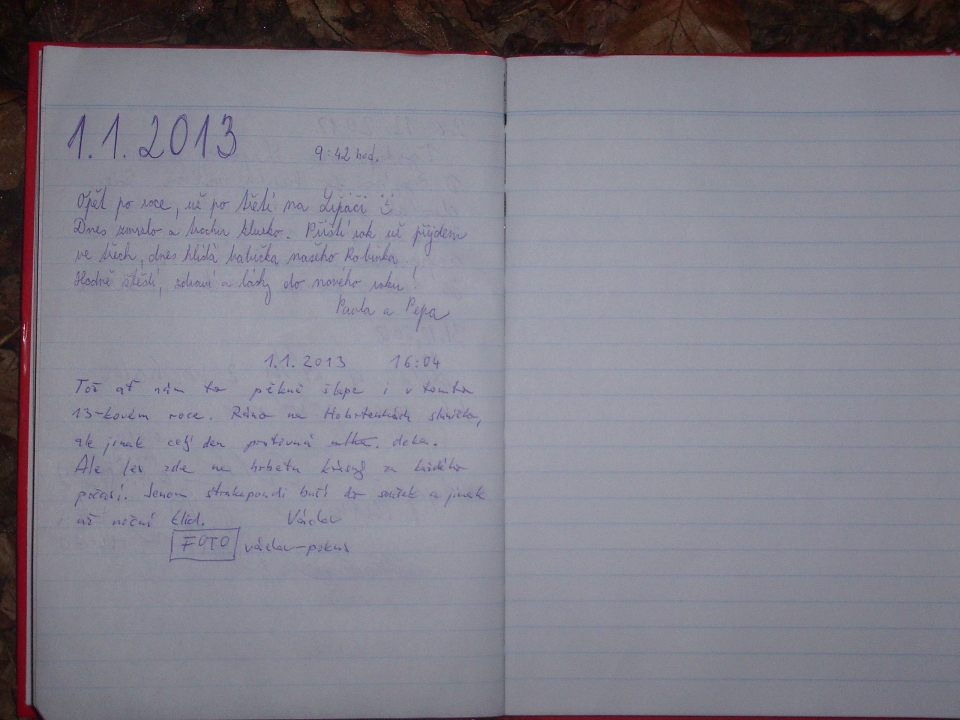 1.1.2013
9:42 hod.
Opět po roce, už po třetí na Lipáči
Dnes zmrzlo a trochu kluzko. Příští rok už přijdeme
ve třech, dnes hlídá babička našeho Robinka.
Hodně štěstí, zdraví a lásky do nového roku!
Pavla a Pepa
1.1.2013 16:04
Toš ať nám to pěkně šlape i v tomto
13-kovém roce. Ráno na sluníčko,
ale jinak celý den protivná deka.
Ale les zde na hřbetu krásný za každého
počasí. Jenom strakapoudi buší do a jinak
už noční klid. Václav
FOTO václav-pokus